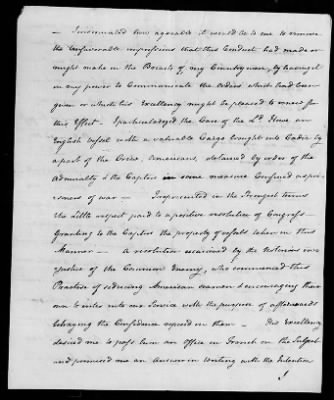 — I insinuated how agreable it would be to me to remove
the unfavorable impressions that this Conduct had made or
might make in the Breasts of my Countrymen, by having it
in my power to Communicate the orders which had been
given or which his Excellency might be pleased to 
this Effect. I particularized the Case of the Ld. Howe an
English Vessel with a valuable Cargo brought into Cadiz by
a part of the Crew, Americans, detained by order of the
Admiralty & the Captors in some measure Confined as pri-
soners of war — I represented in the Strongest terms
the little respect paid to a positive resolution of Congress
Granting to the Captors the property of vessels taken in this
Manner — A resolution occasioned by the
justice of the Common Enemy, who commenced this
Practice of seducing American seamen & encouraging their
own to enter into our Service with the purpose of afterwards
betraying the Confidence reposed in them — His Excellency
desired me to pass him an office in French on the Subject
and promised me an Answer in writing with the Intention